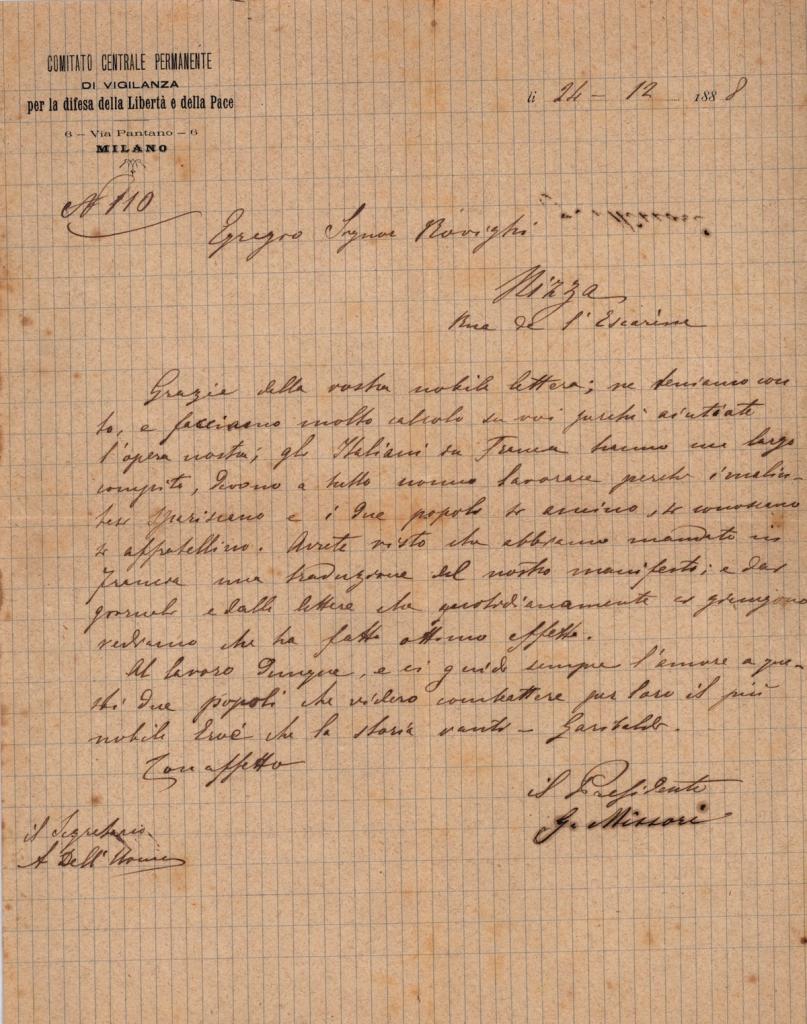 COMITATO CENTRALE PERMANENTE
DI VIGILANZA
per la difesa della Libertà e della Pace
6 – Via Pantano – 6
MILANO
li 24 – 12 1888
N 110
Egregio Signor Rovighi
Nizza
Rue de l'Escarène
Grazie della vostra nobile lettera; ne teniamo con
to, e facciamo molto calcolo su voi perchè aiutiate
l'opera nostra; gli Italiani in Francia hanno un largo
compito, devono a tutto uomo lavorare perchè i malin-
tesi spariscano e i due popoli si amino, si conoscano
si affratellino. Avrete visto che abbiamo mandato in
Francia una traduzione del nostro manifesto; e dai
giornali e dalle lettere che quotidianamente ci giungono
vediamo che ha fatto ottimo effetto.
Al lavoro dunque, e ci guidi sempre l'amore a que-
sti due popoli che videro combattere per loro il più
nobile Eroe che la storia vanti – Garibaldi.
Con affetto
il Presidente
G. Missori
il Segretario
A Dell'